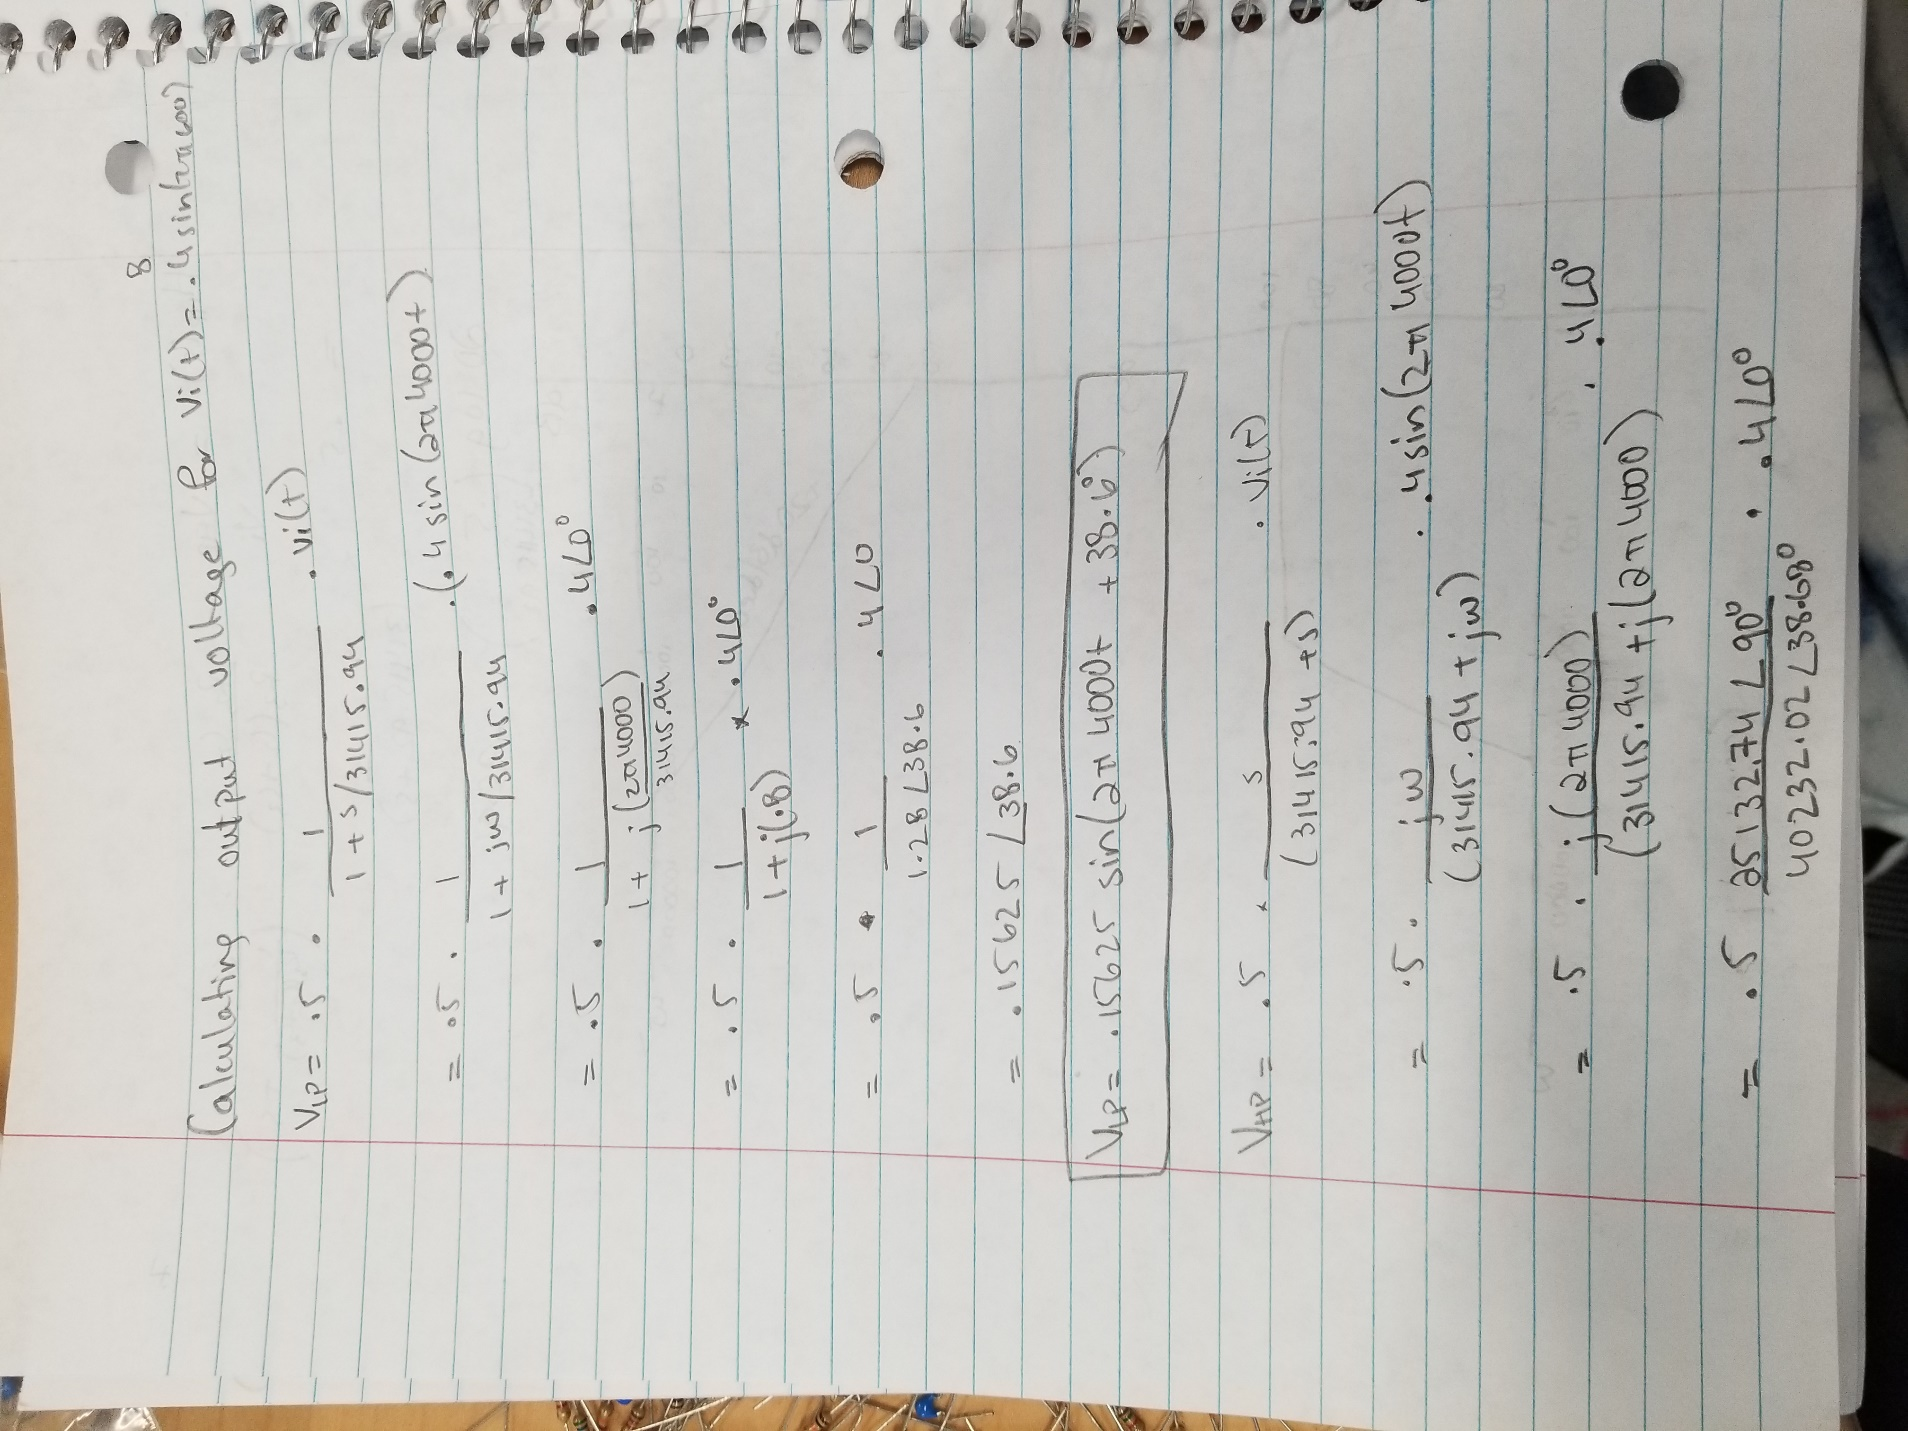 8
Calculating output voltage for Vi(t) = .4 sin(2π4000)
VLP = .5 · 1 / (1 + s/31415.94) · Vi(t)
= .5 · 1 / (1 + jω/31415.94) · (.4 sin(2π4000t)
= .5 · 1 / (1 + j(2π4000)/31415.94) · .4∠0°
= .5 · 1 / (1 + j(.8)) × .4∠0°
= .5 · 1 / (1.28∠38.6) · .4∠0
= .15625∠38.6
VLP = .15625 sin(2π4000t + 38.6°)
VHP = .5 · s / (31415.94 + s) · Vi(t)
= .5 · jω / (31415.94 + jω) · .4 sin(2π4000t)
= .5 · j(2π4000) / (31415.94 + j(2π4000) · .4∠0°
= .5 25132.74∠90° / 40232.02∠38.68° · .4∠0°